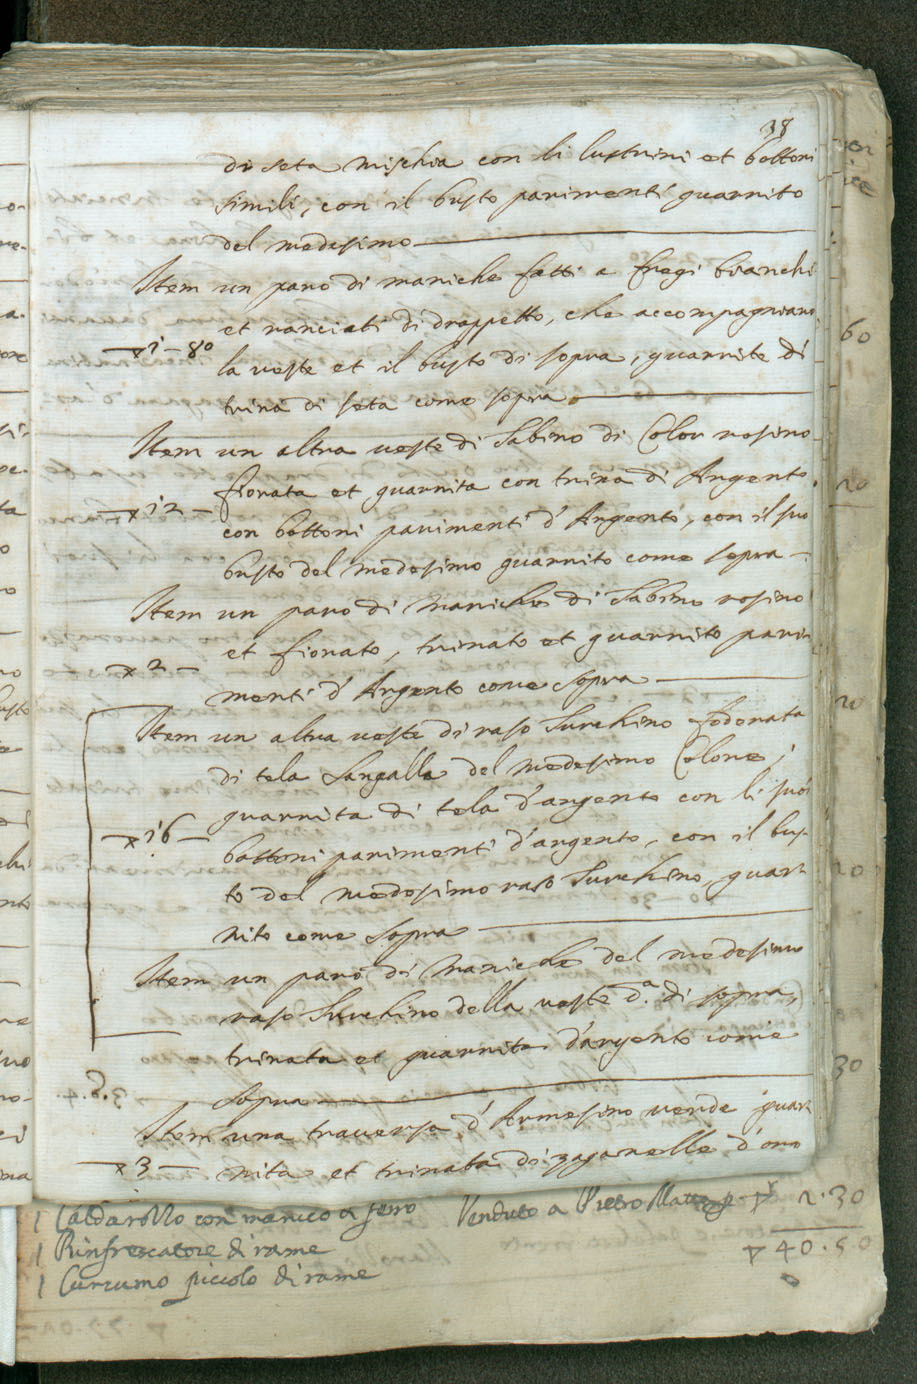 38
di seta mischia con li lustrini et bottoni
simili, con il busto parimenti guarnito
del medesimo
Item un paro di maniche fatti a fregi bianchi
et ranciati di drappetto, che accompagniano
▽1-80
la veste et il busto di sopra, guarnite di
trina di seta come sopra
Item un altra veste di Sabino di Color rosino
fiorata et guarnita con trina di Argento
▽12
con bottoni parimenti d'Argento, con il suo
busto del medesimo guarnito come sopra
Item un paro di maniche di Sabino rosino
et fiorato, trinato et guarnito pari
▽2
menti d'Argento come sopra
Item un altra veste di raso Turchino foderata
di tela Sangalla del medesimo Colore,
guarnita di tela d'argento con li suoi
▽16
bottoni parimenti d'argento, con il bus
to del medesimo raso Turchino, guar
nito come sopra
Item un paro di maniche del medesimo
raso Turchino della veste d.a di sopra,
trinata et guarnita d'argento come
sopra
Item una traversa d'Armesino verde guar
▽3
nita et trinata di zaganelle d'oro
60
20
20
20
30
1 Caldarozzo con manico a ferro Venduto a Pietro ▽ 2.30
1 Rinfrescatore di rame ▽ 40.50
1 Cucumo piccolo di rame